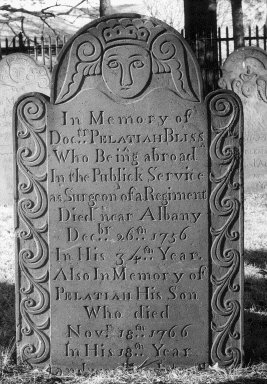 In Memory of
Docᵗʳ PELATIAH BLISS
Who Being abroad
In the Publick Service
as Surgeon of a Regiment
Died near Albany
Decᵇʳ 26ᵗʰ 1756
In His 34ᵗʰ Year.
Also In Memory of
PELATIAH His Son
Who died
Novʳ 18ᵗʰ 1766
In His 18ᵗʰ Year